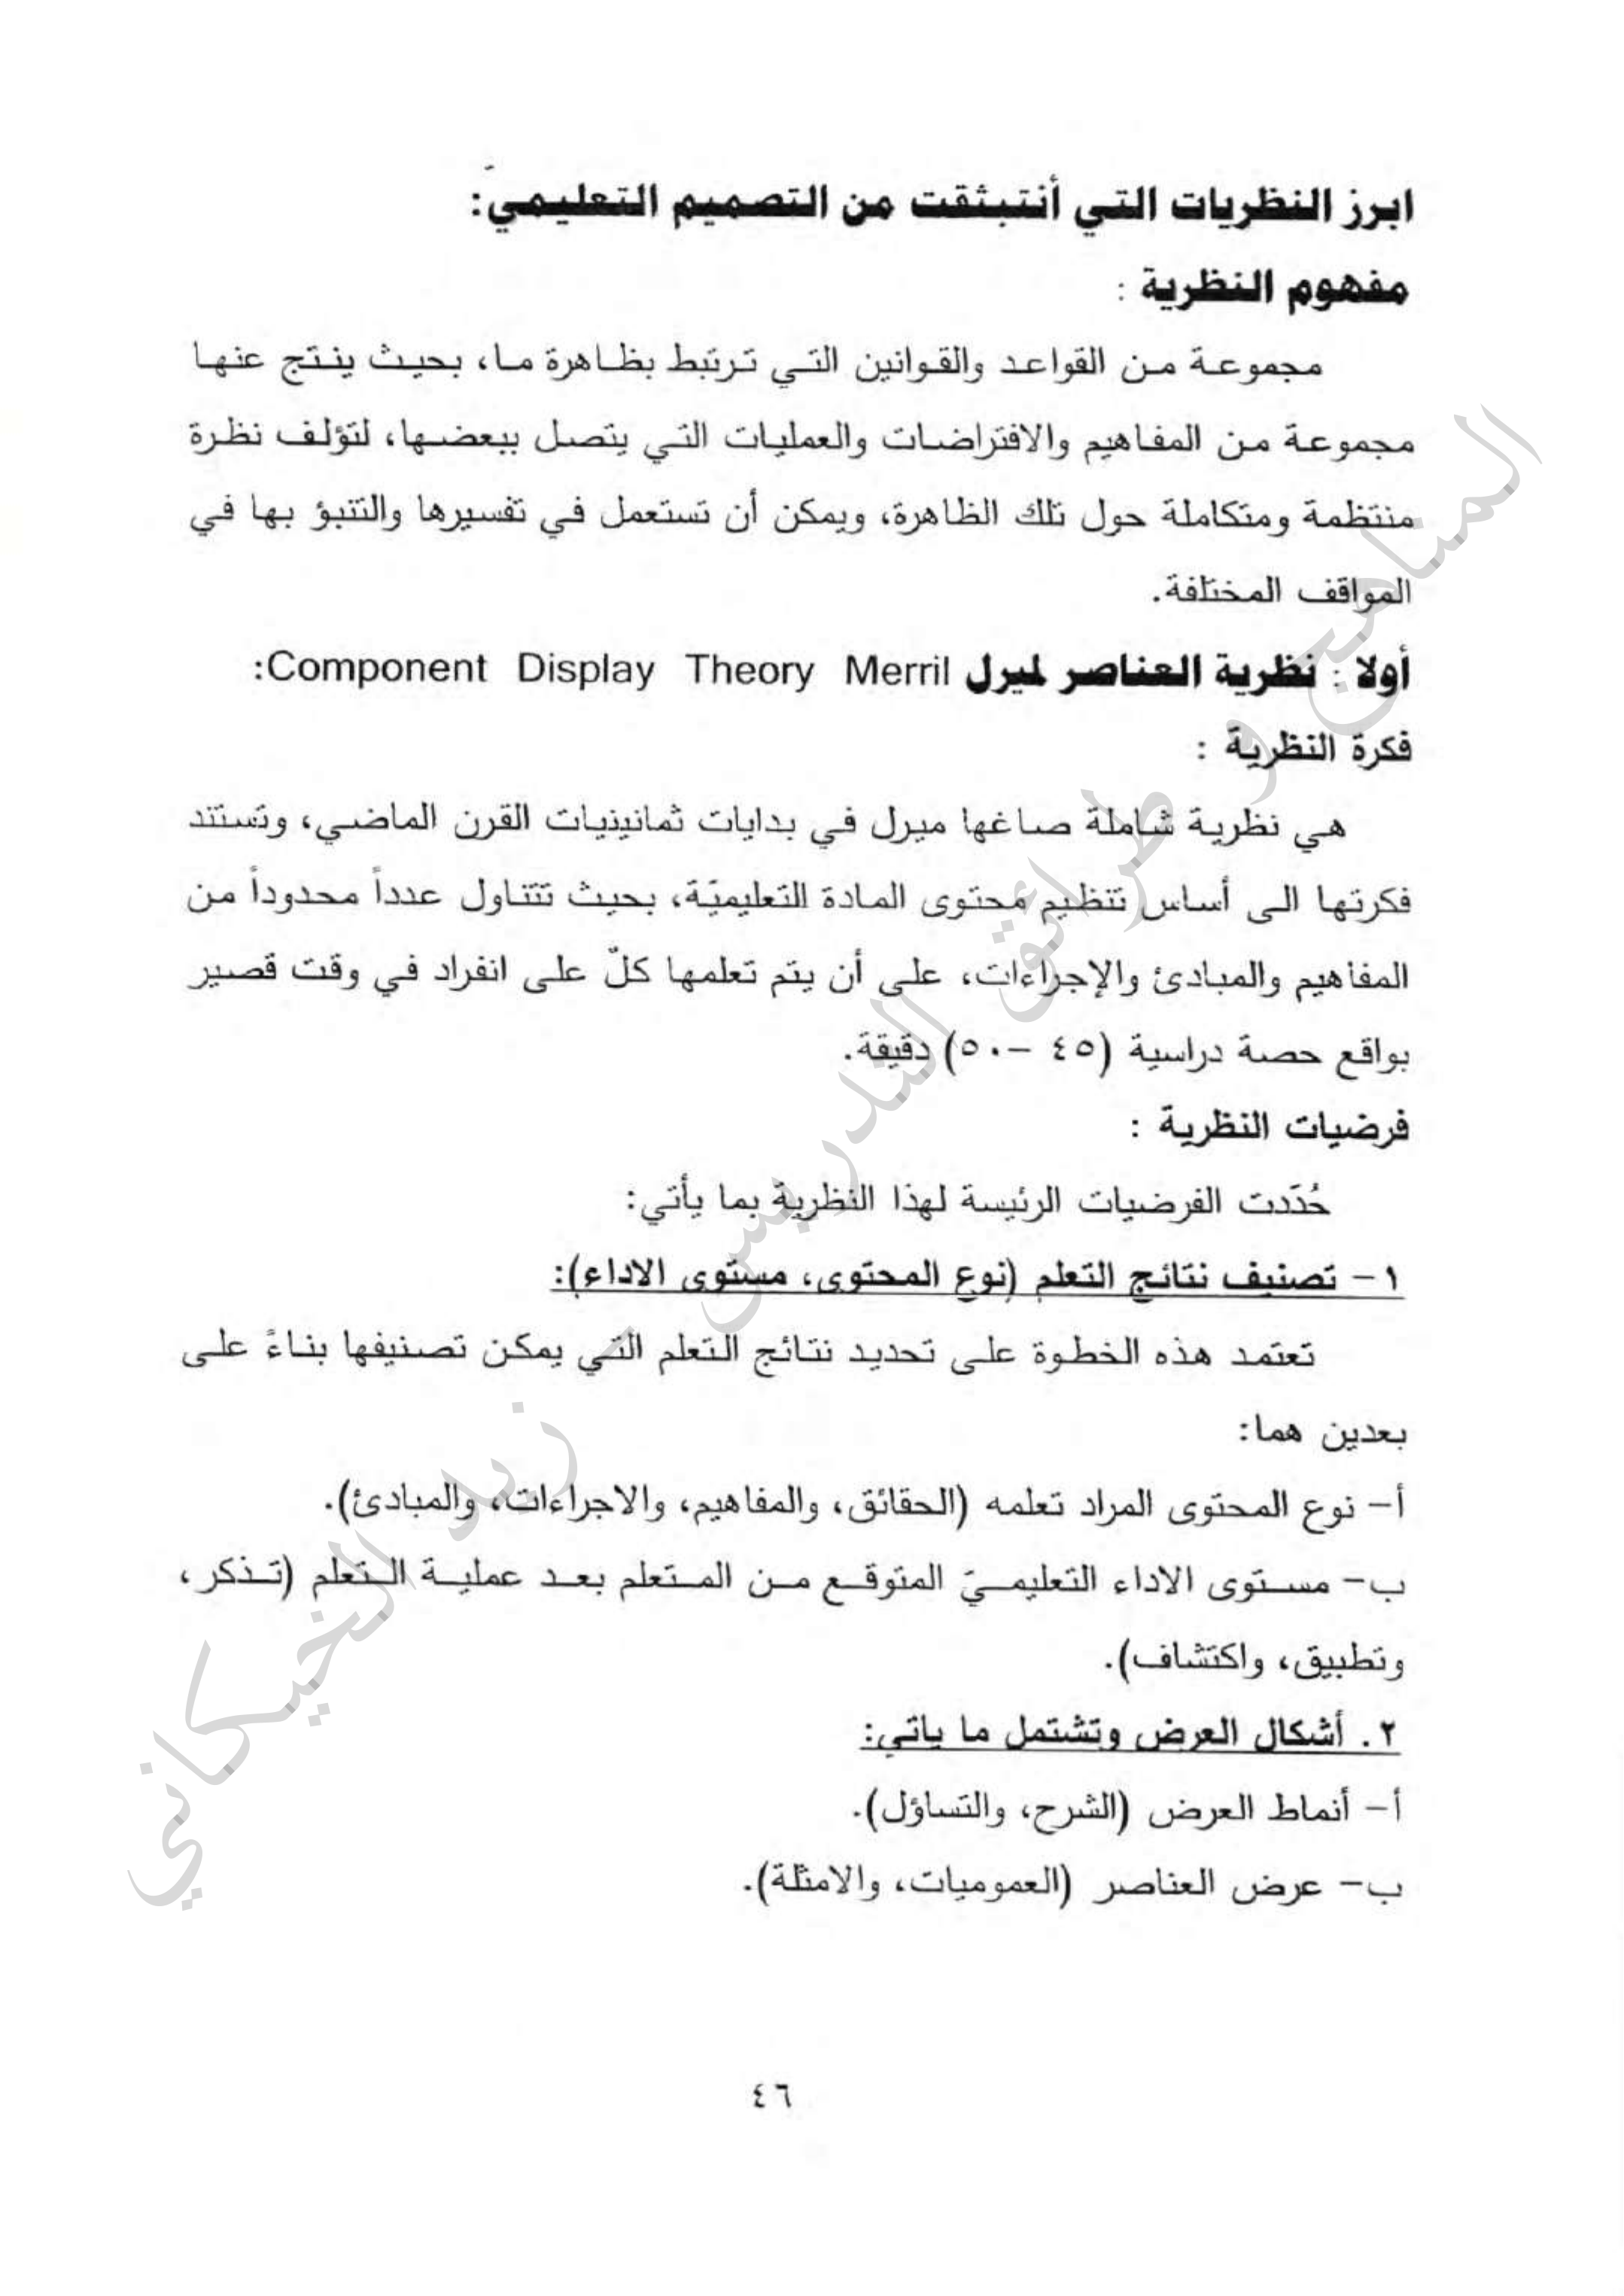 ابرز النظريات التي أنتبثقت من التصميم التعليميَ:
مفهوم النظرية :
مجموعة من القواعد والقوانين التي ترتبط بظاهرة ما، بحيث ينتج عنها
مجموعة من المفاهيم والافتراضات والعمليات التي يتصل ببعضها، لتؤلف نظرة
منتظمة ومتكاملة حول تلك الظاهرة، ويمكن أن تستعمل في تفسيرها والتنبؤ بها في
المواقف المختلفة.
أولا : نظرية العناصر لميرل Component Display Theory Merril:
فكرة النظرية :
هي نظرية شاملة صاغها ميرل في بدايات ثمانينيات القرن الماضي، وتستند
فكرتها الى أساس تنظيم محتوى المادة التعليميّة، بحيث تتناول عدداً محدوداً من
المفاهيم والمبادئ والإجراءات، على أن يتم تعلمها كلّ على انفراد في وقت قصير
بواقع حصة دراسية (٤٥ -٥٠) دقيقة.
فرضيات النظرية :
حُدَدت الفرضيات الرئيسة لهذا النظرية بما يأتي:
١- تصنيف نتائج التعلم (نوع المحتوى، مستوى الاداء):
تعتمد هذه الخطوة على تحديد نتائج التعلم التي يمكن تصنيفها بناءً على
بعدين هما:
أ- نوع المحتوى المراد تعلمه (الحقائق، والمفاهيم، والاجراءات، والمبادئ).
ب- مستوى الاداء التعليميَ المتوقع من المتعلم بعد عملية التعلم (تذكر،
وتطبيق، واكتشاف).
٢. أشكال العرض وتشتمل ما ياتي:
أ- أنماط العرض (الشرح، والتساؤل).
ب- عرض العناصر (العموميات، والامثلة).
٤٦
المناهج و طرائق التدريس - زيد الخيكاني